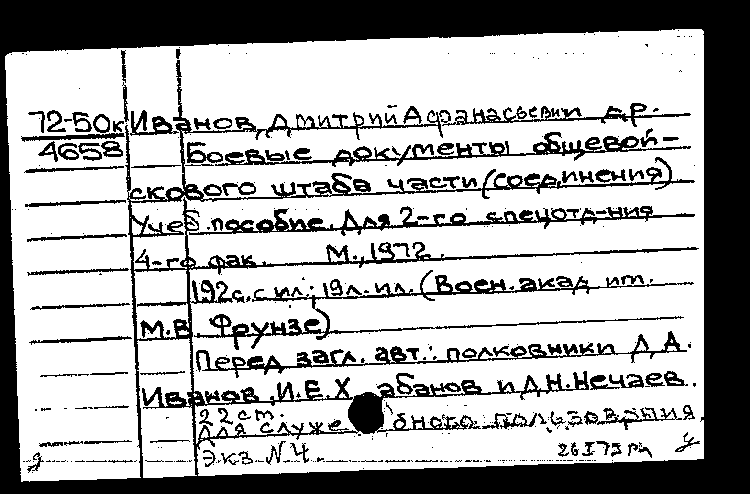 72-50к Иванов, Дмитрий Афанасьевич и др.
4658 Боевые документы общевой-
скового штаба части (соединения)
Учеб. пособие. Для 2-го спецотд-ния
4-го фак. М., 1972.
192 с. с ил.; 19 л. ил. (Воен. акад. им.
М.В. Фрунзе)
Перед загл. авт.: полковники Д.А.
Иванов, И.Е.Х абанов и Д.Н. Нечаев.
22 ст.
Для служебного пользования.
Экз. N 4.